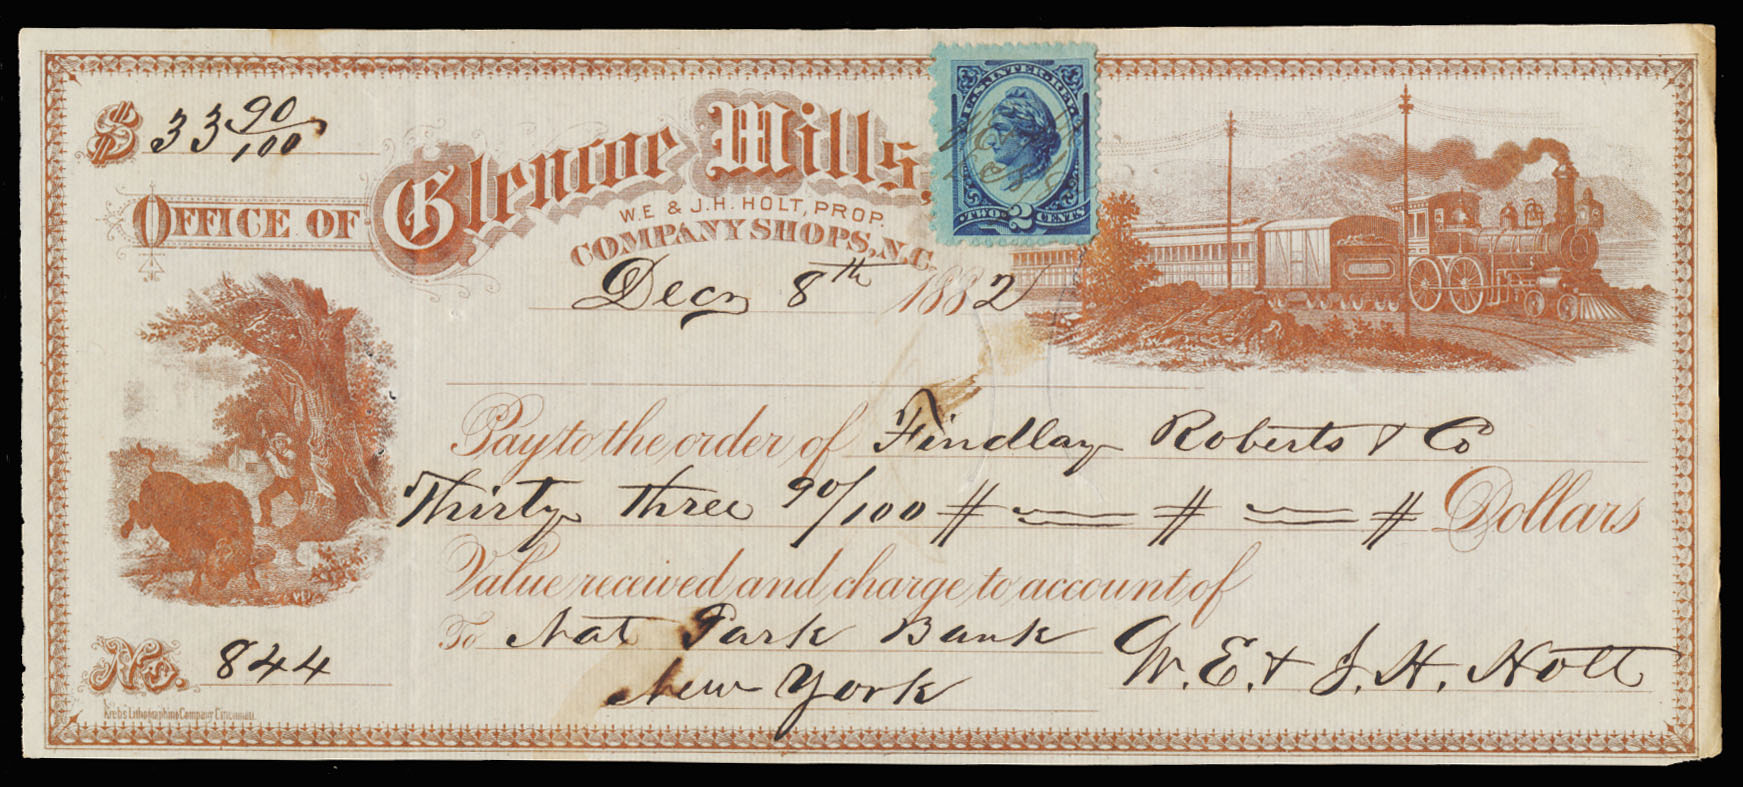 $ 33 90/100
U.S. INTER. REV.
TWO 2 CENTS
OFFICE OF Glencoe Mills,
W.E & J.H. HOLT, PROP.
COMPANY SHOPS, N.C.
Decr 8th 1882
Pay to the order of Findlay Roberts & Co
Thirty three 90/100 # — # — # Dollars
Value received and charge to account of
To Nat Park Bank
New York
W. E. & J. H. Holt
No. 844
Krebs Lithographing Company Cincinnati